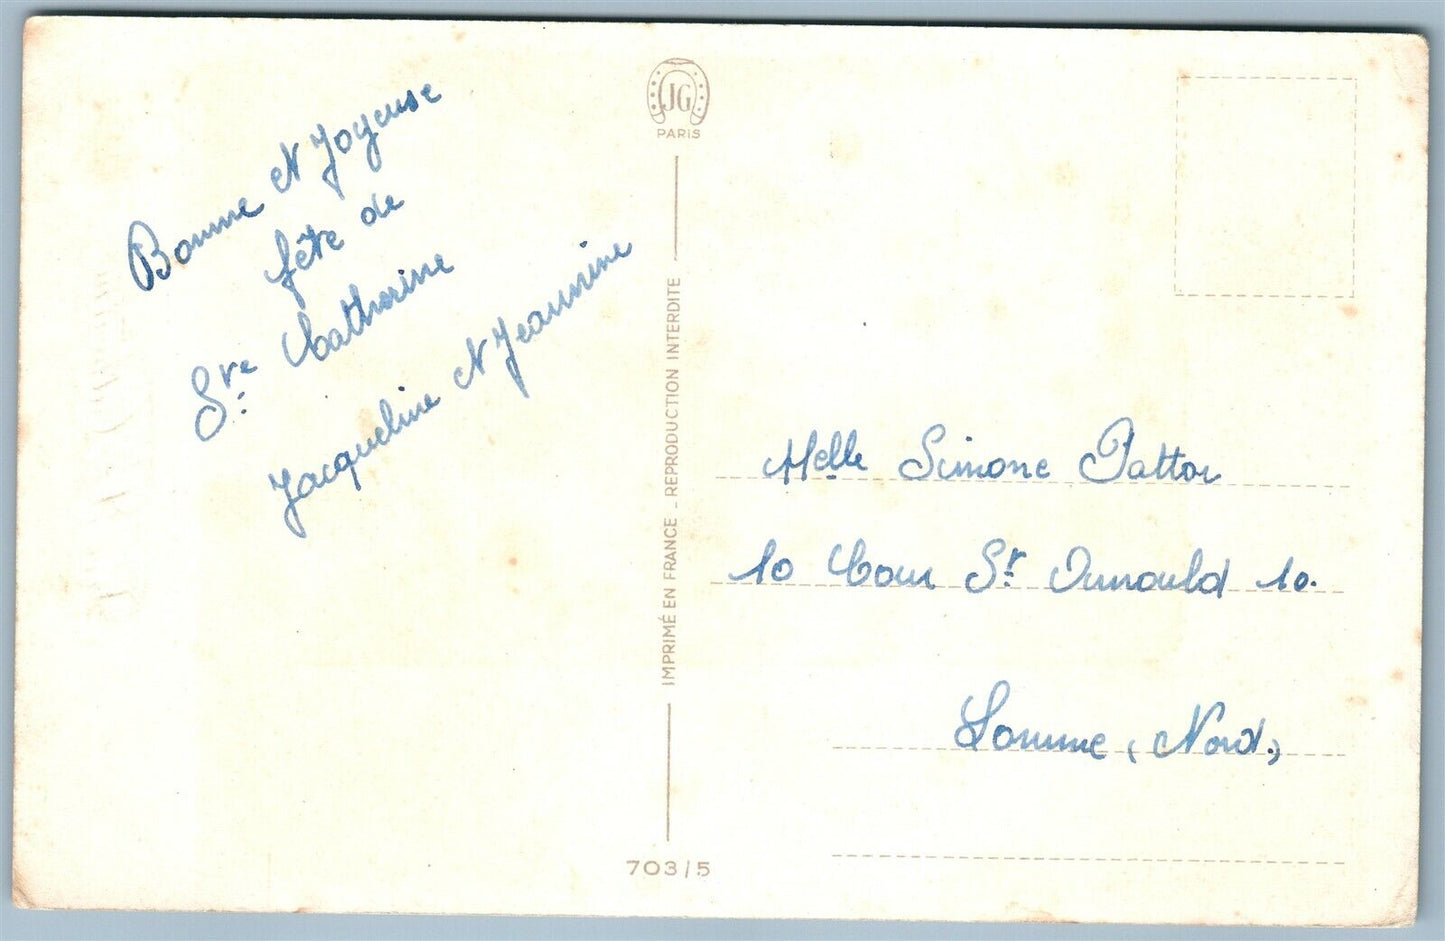 Bonne & Joyeuse
fête de
Ste Catherine
Jacqueline & Jeannine
JG
PARIS
IMPRIMÉ EN FRANCE _ REPRODUCTION INTERDITE
703/5
Melle Simone
10 Cour St 10.
Lomme (Nord)